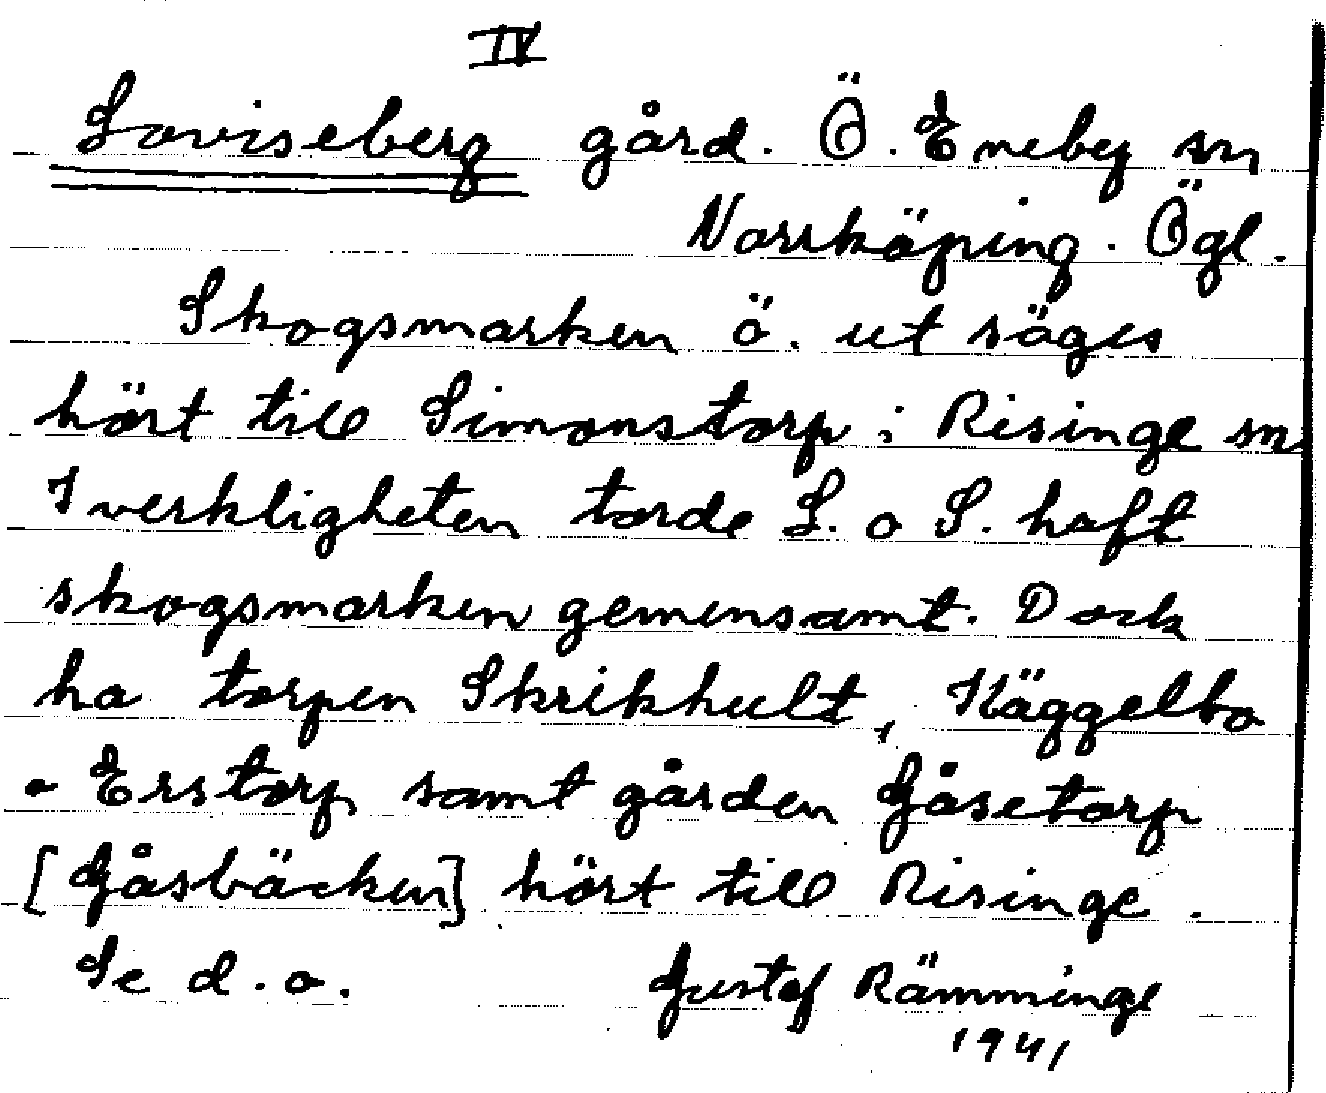 IV
Loviseberg gård. Ö. Eneby sn
Norrköping. Ögl.
Skogsmarken ö. ut säges
hört till Simonstorp i Risinge sn.
I verkligheten torde L. o S. haft
skogsmarken gemensamt. Dock
ha torpen Skrikhult, Häggelbo
o Erstorp samt gården Gåsetorp
[Gåsbäcken] hört till Risinge.
Se d.o. Gustaf Rämminge
1941